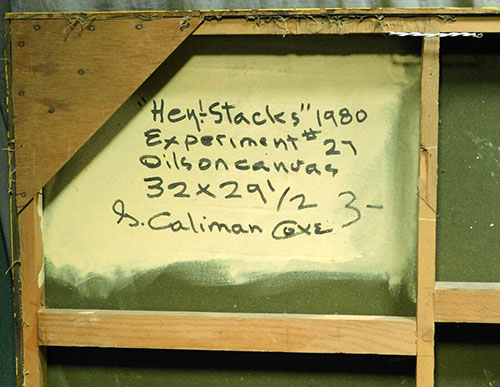 "Hey! Stacks" 1980
Experiment # 27
Oils on canvas
32 x 29 1/2 3-
G. Caliman Coxe